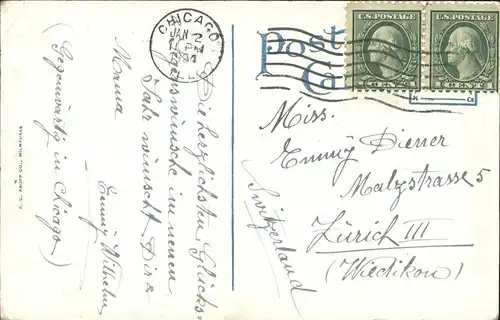 CHICAGO
JAN 2
11 PM
Post
Ca
U.S. POSTAGE
U.S. POSTAGE
CENTS
CENTS
Die herzlichsten Glücks-
& Segenswünsche im neuen
Jahr wünscht Dir &
Mama
Emmy Wilhelm
(Gegenwärtig in Chicago)
Miss.
Emmy Diener
Malzstrasse 5
Zürich III
(Wiedikon)
Switzerland